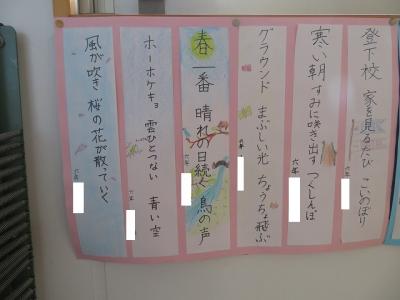 登下校 家を見るたび こいのぼり
六年
寒い朝 すみに咲き出す つくしんぼ
六年
グラウンド まぶしい光 ちょうちょ飛ぶ
六年
春一番 晴れの日続く 鳥の声
六年
ホーホケキョ 雲ひとつない 青い空
六年
風が吹き 桜の花が散っていく
六年